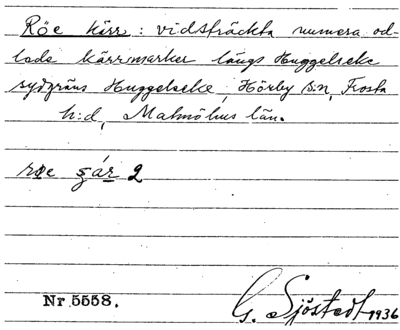 Röe kärr: vidsträckta numera od-
lade kärrmarker längs Huggelseke
sydgräns Huggelseke, Hörby s:n, Frosta
h:d, Malmöhus län.
røe şár 2
Nr 5558.
G. Sjöstedt 1936